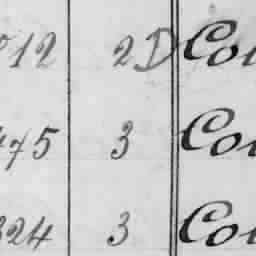 12 2D Co
75 3 Co
324 3 Co